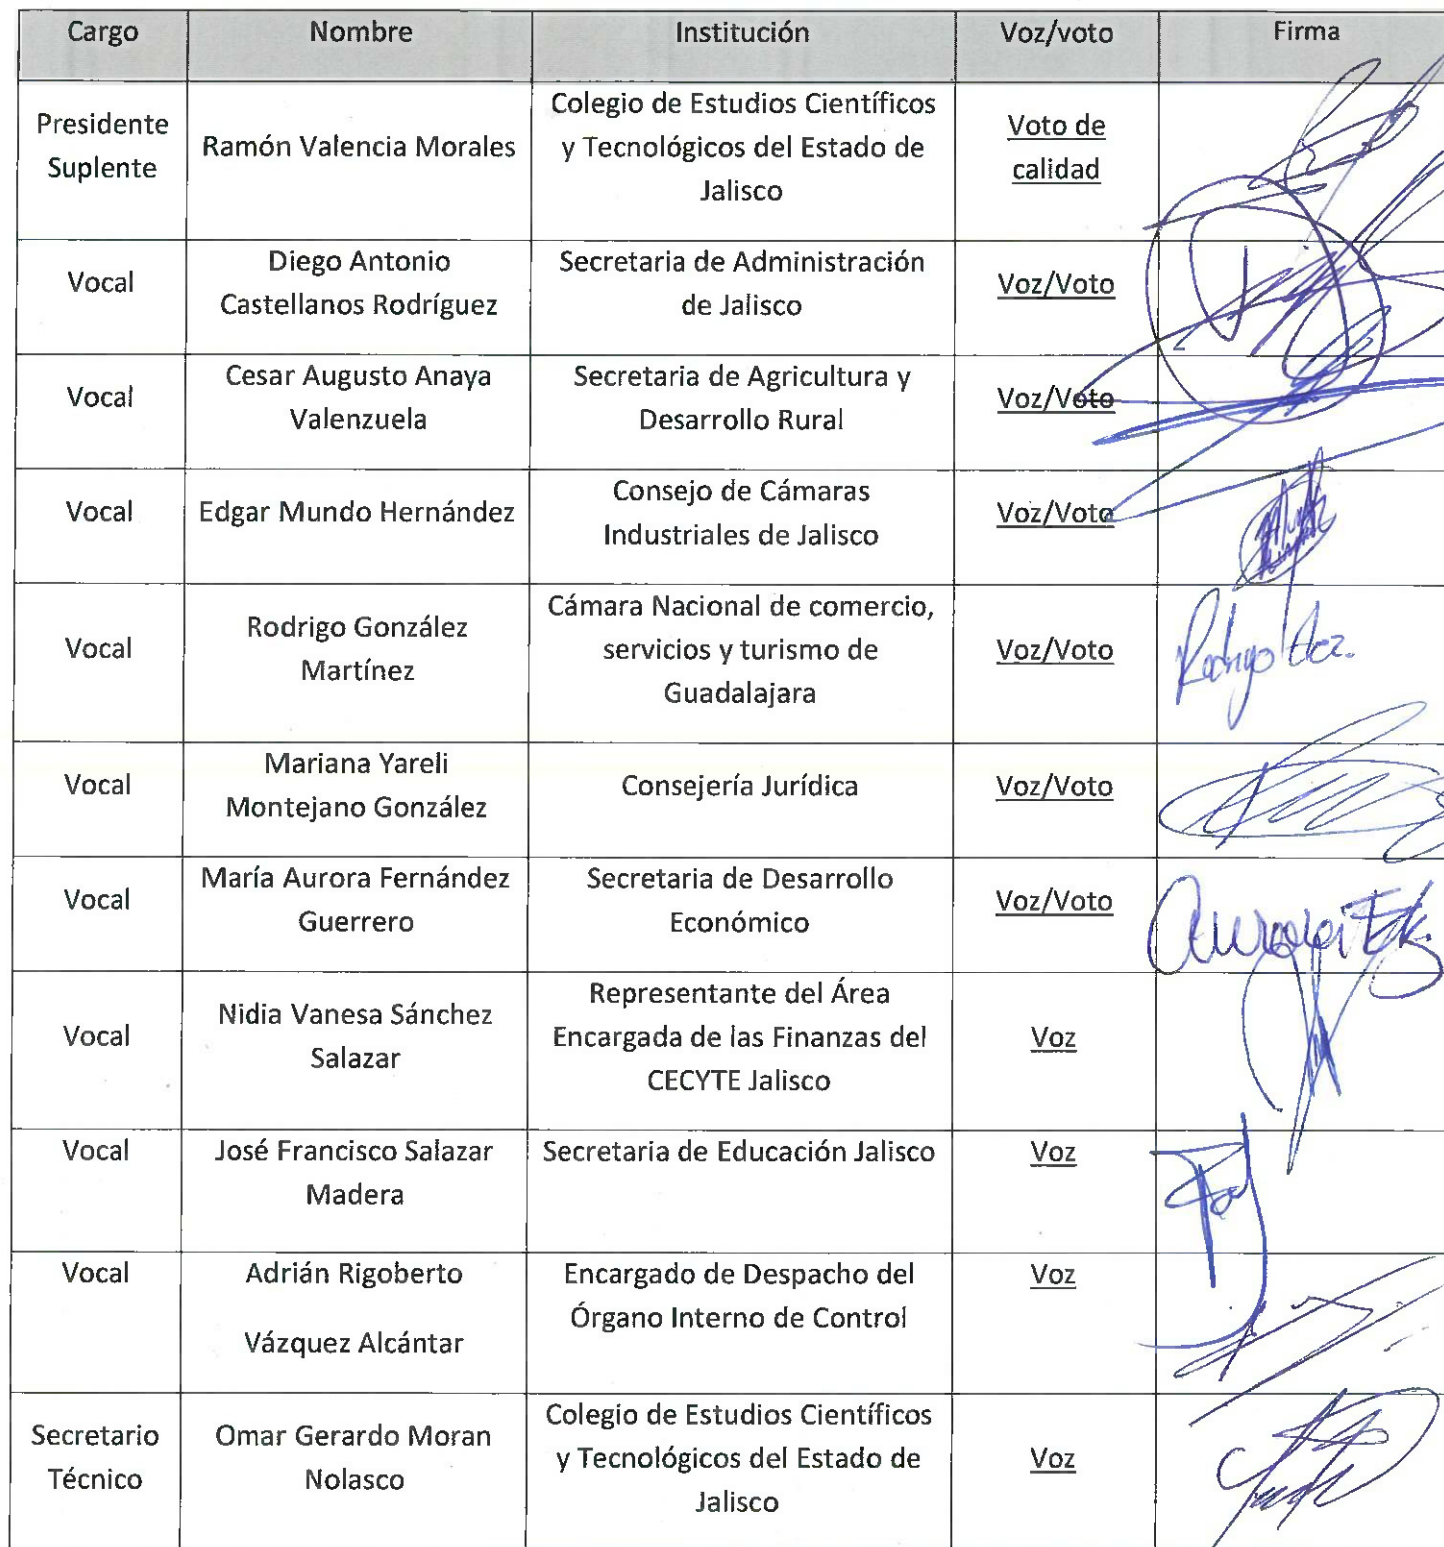 Cargo Nombre Institución Voz/voto Firma
Presidente
Suplente
Ramón Valencia Morales
Colegio de Estudios Científicos
y Tecnológicos del Estado de
Jalisco
Voto de
calidad
Vocal
Diego Antonio
Castellanos Rodríguez
Secretaria de Administración
de Jalisco
Voz/Voto
Vocal
Cesar Augusto Anaya
Valenzuela
Secretaria de Agricultura y
Desarrollo Rural
Voz/Voto
Vocal
Edgar Mundo Hernández
Consejo de Cámaras
Industriales de Jalisco
Voz/Voto
Vocal
Rodrigo González
Martínez
Cámara Nacional de comercio,
servicios y turismo de
Guadalajara
Voz/Voto
Rodrigo
Vocal
Mariana Yareli
Montejano González
Consejería Jurídica
Voz/Voto
Vocal
María Aurora Fernández
Guerrero
Secretaria de Desarrollo
Económico
Voz/Voto
Vocal
Nidia Vanesa Sánchez
Salazar
Representante del Área
Encargada de las Finanzas del
CECYTE Jalisco
Voz
Vocal
José Francisco Salazar
Madera
Secretaria de Educación Jalisco
Voz
Vocal
Adrián Rigoberto
Vázquez Alcántar
Encargado de Despacho del
Órgano Interno de Control
Voz
Secretario
Técnico
Omar Gerardo Moran
Nolasco
Colegio de Estudios Científicos
y Tecnológicos del Estado de
Jalisco
Voz